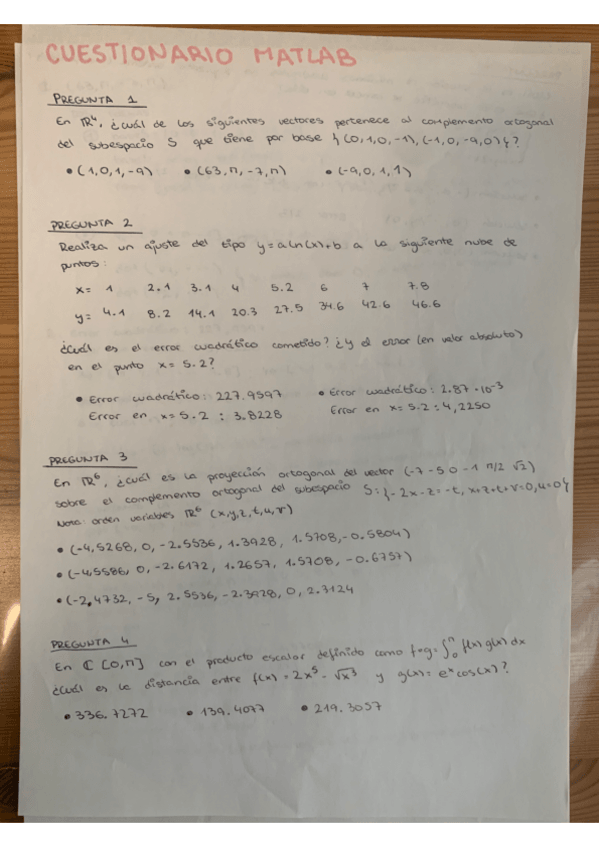 CUESTIONARIO MATLAB
PREGUNTA 1
En ℝ⁴, ¿cuál de los siguientes vectores pertenece al complemento ortogonal
del subespacio S que tiene por base {(0,1,0,-1),(-1,0,-9,0)}?
• (1,0,1,-9) • (63,π,-7,π) • (-9,0,1,1)
PREGUNTA 2
Realiza un ajuste del tipo y=aln(x)+b a la siguiente nube de
puntos:
x= 1 2.1 3.1 4 5.2 6 7 7.8
y= 4.1 8.2 14.1 20.3 27.5 34.6 42.6 46.6
¿Cuál es el error cuadrático cometido? ¿y el error (en valor absoluto)
en el punto x=5.2?
• Error cuadrático: 227.9597 • Error cuadrático: 2.87·10⁻³
Error en x=5.2: 3.8228 Error en x=5.2: 4,2250
PREGUNTA 3
En ℝ⁶, ¿cuál es la proyección ortogonal del vector (-7 -5 0 -1 π/2 √2)
sobre el complemento ortogonal del subespacio S={-2x-z=-t, x+z+t+v=0, u=0}
Nota: orden variables ℝ⁶ (x,y,z,t,u,v)
• (-4,5268, 0, -2.5536, 1.3928, 1.5708, -0.5804)
• (-4,5586, 0, -2.6172, 1.2657, 1.5708, -0.6757)
• (-2,4732, -5, 2.5536, -2.3928, 0, 2.3124
PREGUNTA 4
En ℂ [0,π] con el producto escalar definido como f•g=∫₀^π f(x)g(x)dx
¿Cuál es la distancia entre f(x)=2x⁵-√x³ y g(x)=eˣcos(x)?
• 336.7272 • 139.4077 • 219.3057